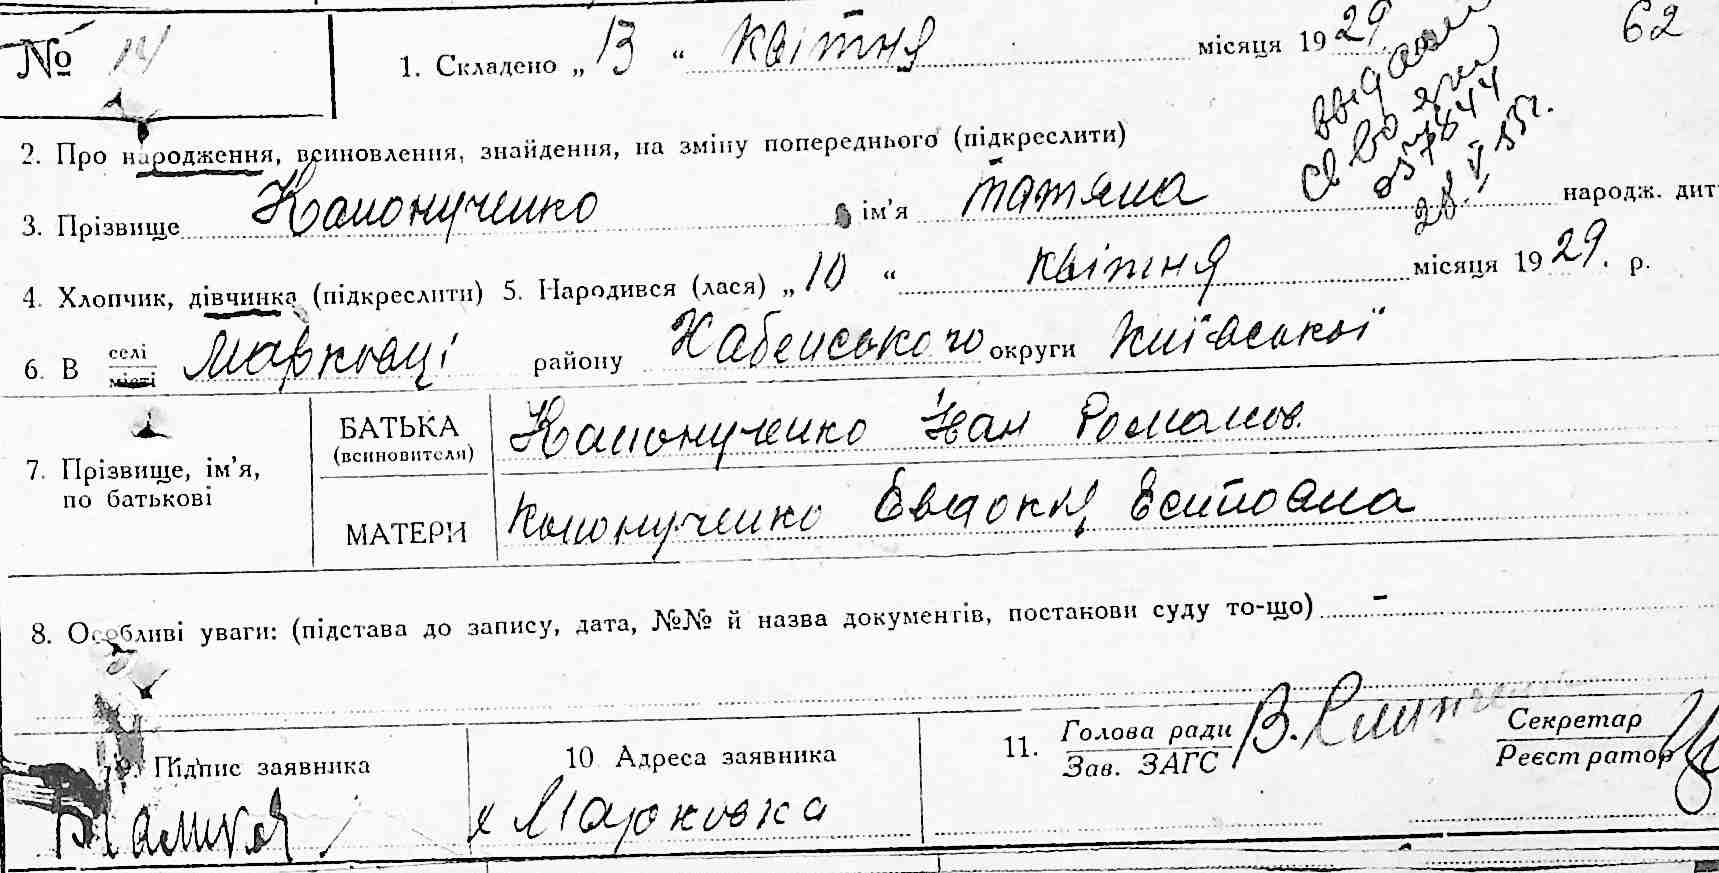 № 14
1. Складено „ 13 “ квітня місяця 1929 р. 62
видано
св во
28.V 55г.
2. Про народження, всиновлення, знайдення, на зміну попереднього (підкреслити)
3. Прізвище Капонученко ім’я татяна народж. дит
4. Хлопчик, дівчинка (підкреслити) 5. Народився (лася) „ 10 “ квітня місяця 1929. р.
6. В селі місті Марківці району округи Київської
7. Прізвище, ім’я, по батькові
БАТЬКА (всиновителя) Капонученко Іван Романов.
МАТЕРИ Капонученко Евдокія
8. Особливі уваги: (підстава до запису, дата, №№ й назва документів, постанови суду то-що) -
9. Підпис заявника
10 Адреса заявника Марковка
11. Голова ради Зав. ЗАГС В.
Секретар Реєстратор